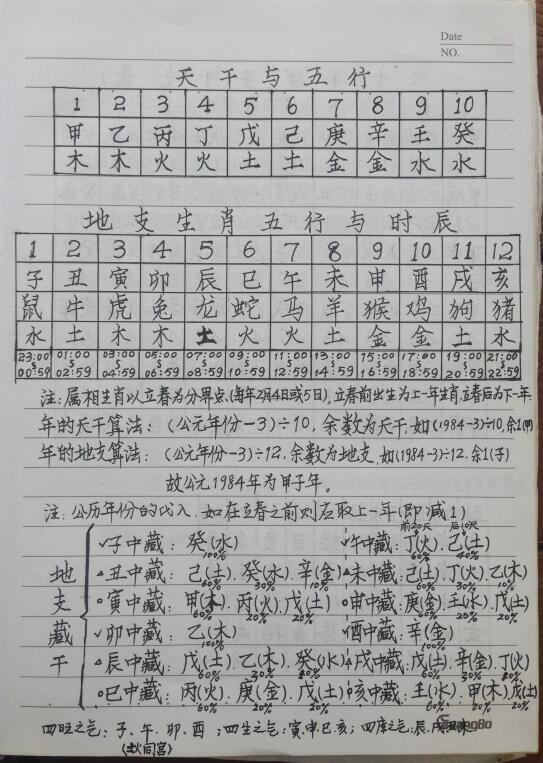 Date
NO.
天干与五行
1 2 3 4 5 6 7 8 9 10
甲 乙 丙 丁 戊 己 庚 辛 壬 癸
木 木 火 火 土 土 金 金 水 水
地支生肖五行与时辰
1 2 3 4 5 6 7 8 9 10 11 12
子 丑 寅 卯 辰 巳 午 未 申 酉 戌 亥
鼠 牛 虎 兔 龙 蛇 马 羊 猴 鸡 狗 猪
水 土 木 木 土 火 火 土 金 金 土 水
23:00 01:00 03:00 05:00 07:00 09:00 11:00 13:00 15:00 17:00 19:00 21:00
00:59 02:59 04:59 06:59 08:59 10:59 12:59 14:59 16:59 18:59 20:59 22:59
注:属相生肖以立春为分界点,(每年2月4日或5日),立春前出生为上一年生肖,立春后为下一年.
年的天干算法:(公元年份-3)÷10,余数为天干,如(1984-3)÷10,余1(甲
年的地支算法:(公元年份-3)÷12,余数为地支,如(1984-3)÷12.余1(子)
故公元1984年为甲子年。
注:公历年份的代入,如在立春之前则应取上一年(即减1)
前20天 后10天
地支藏干
✓子中藏:癸(水) ✓午中藏:丁(火).己(土)
100% 60% 40%
△丑中藏:己(土).癸(水).辛(金) △未中藏:己(土).丁(火).乙(木)
60% 30% 10% 60% 30% 10%
○寅中藏:甲(木).丙(火).戊(土) ○申中藏:庚(金).壬(水).戊(土)
60% 20% 20% 60% 20% 20%
✓卯中藏:乙(木) ✓酉中藏:辛(金)
100% 100%
△辰中藏:戊(土).乙(木).癸(水) △戌中藏:戊(土).辛(金).丁(火)
60% 30% 60% 30%
○巳中藏:丙(火).庚(金).戊(土) ○亥中藏:壬(水).甲(木).戊(土)
60% 20% 20% 60% 20% 20%
四旺之气:子、午、卯、酉;四生之气:寅.申.巳.亥;四库之气:辰.戌.丑.未